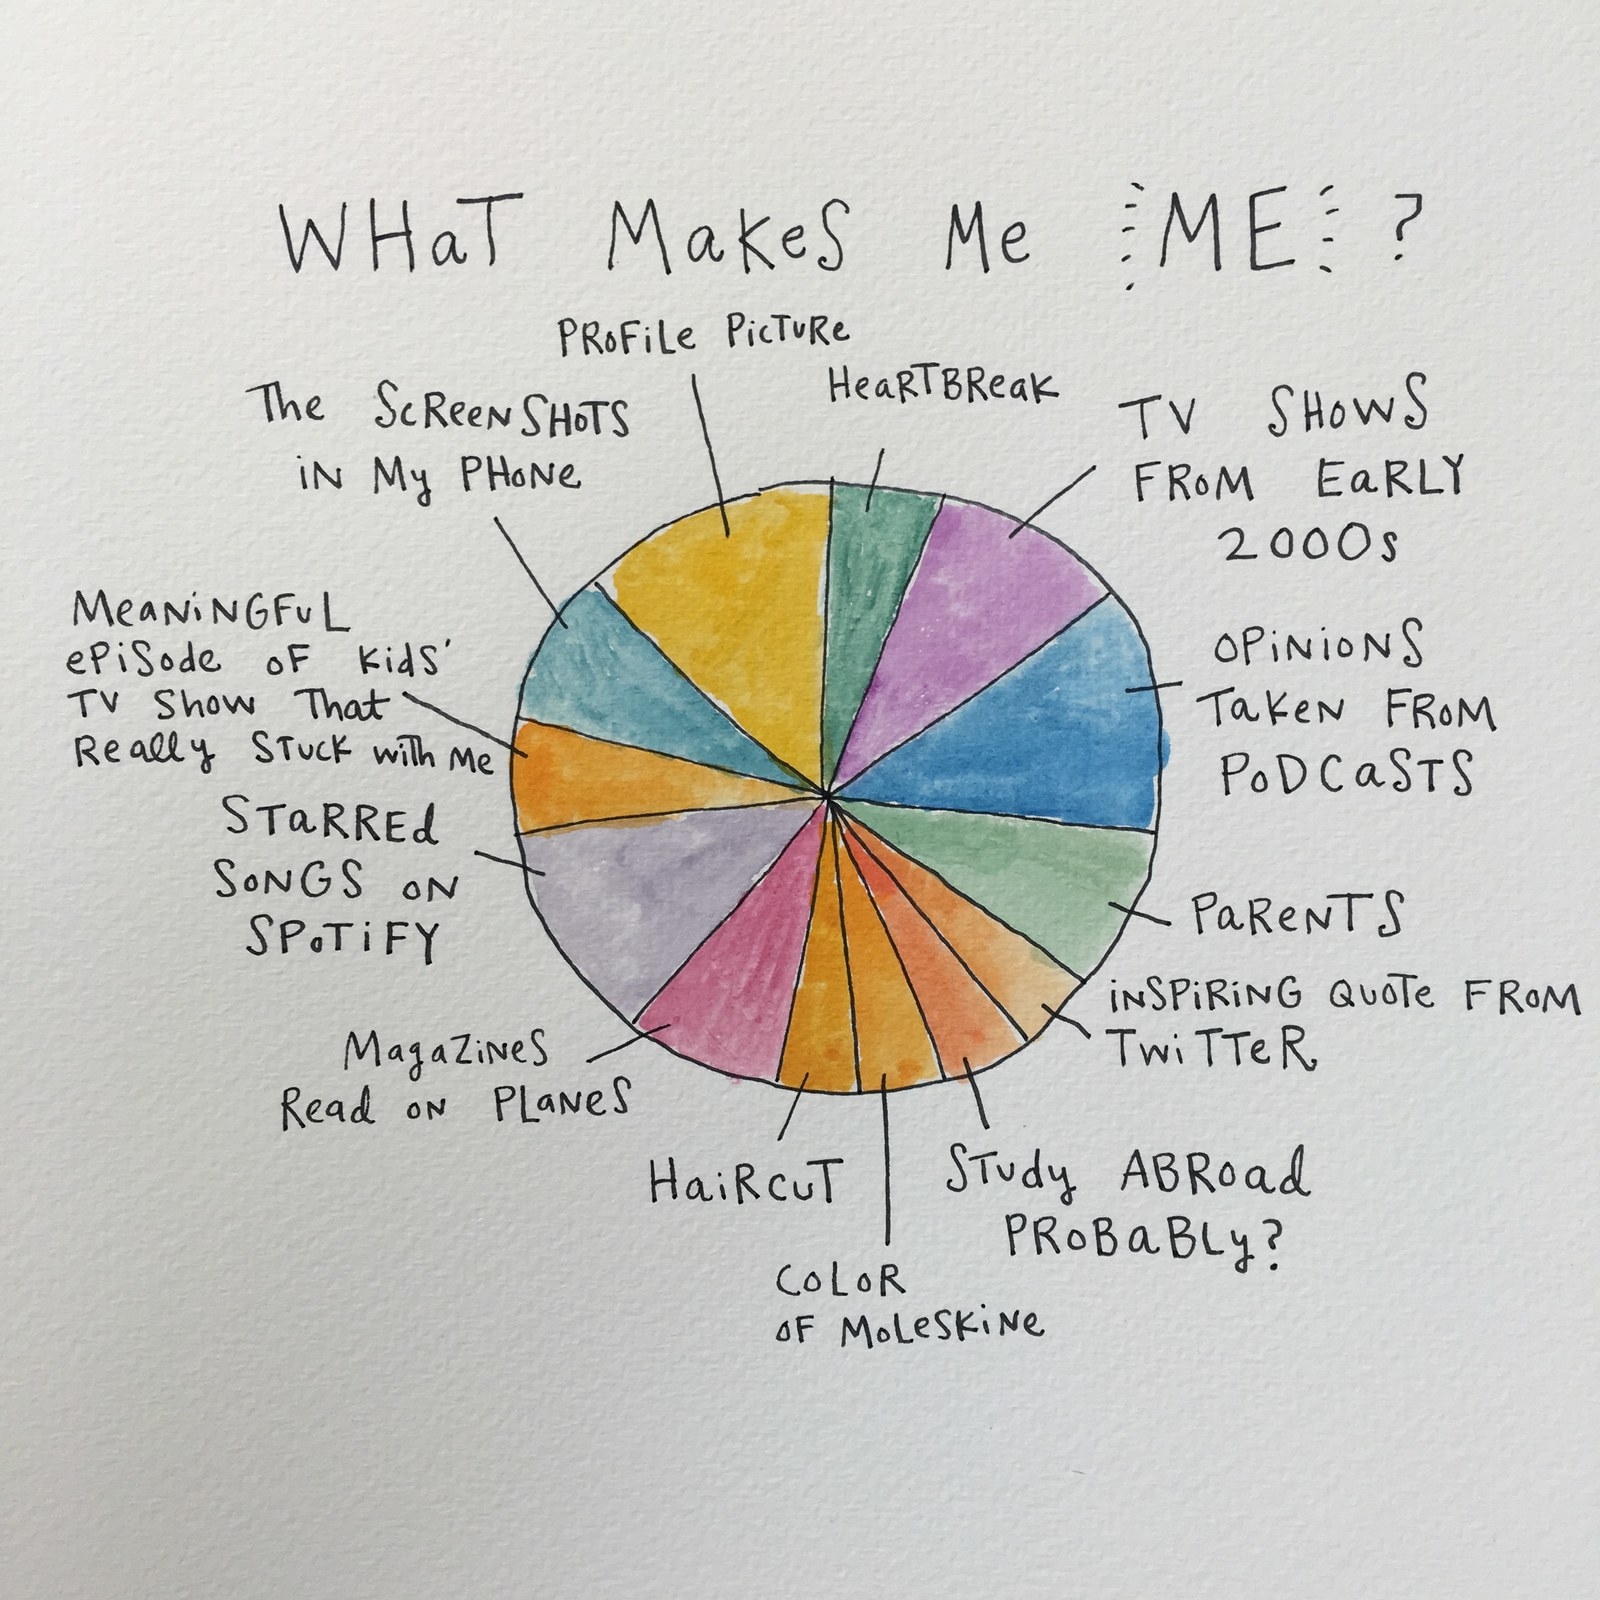 WHaT MakeS Me ME ?
PRoFiLe PicTuRe
HeaRTBReaK
The ScReenSHoTS
iN My PHoNe
TV SHoWS
FRoM EaRLY
2000s
MeaNiNGFuL
ePiSode oF Kids'
TV Show That
Really STuck with Me
OPiNioNS
TaKeN FRoM
PoDCaSTS
STaRREd
SoNGS oN
SPoTiFY
PaReNTS
iNSPiRiNG QuoTe FRoM
TwiTTeR
MagaZiNeS
Read oN PLaNeS
HaiRcuT
STudy ABRoad
PRoBaBLy?
CoLoR
oF MoLeSKiNe